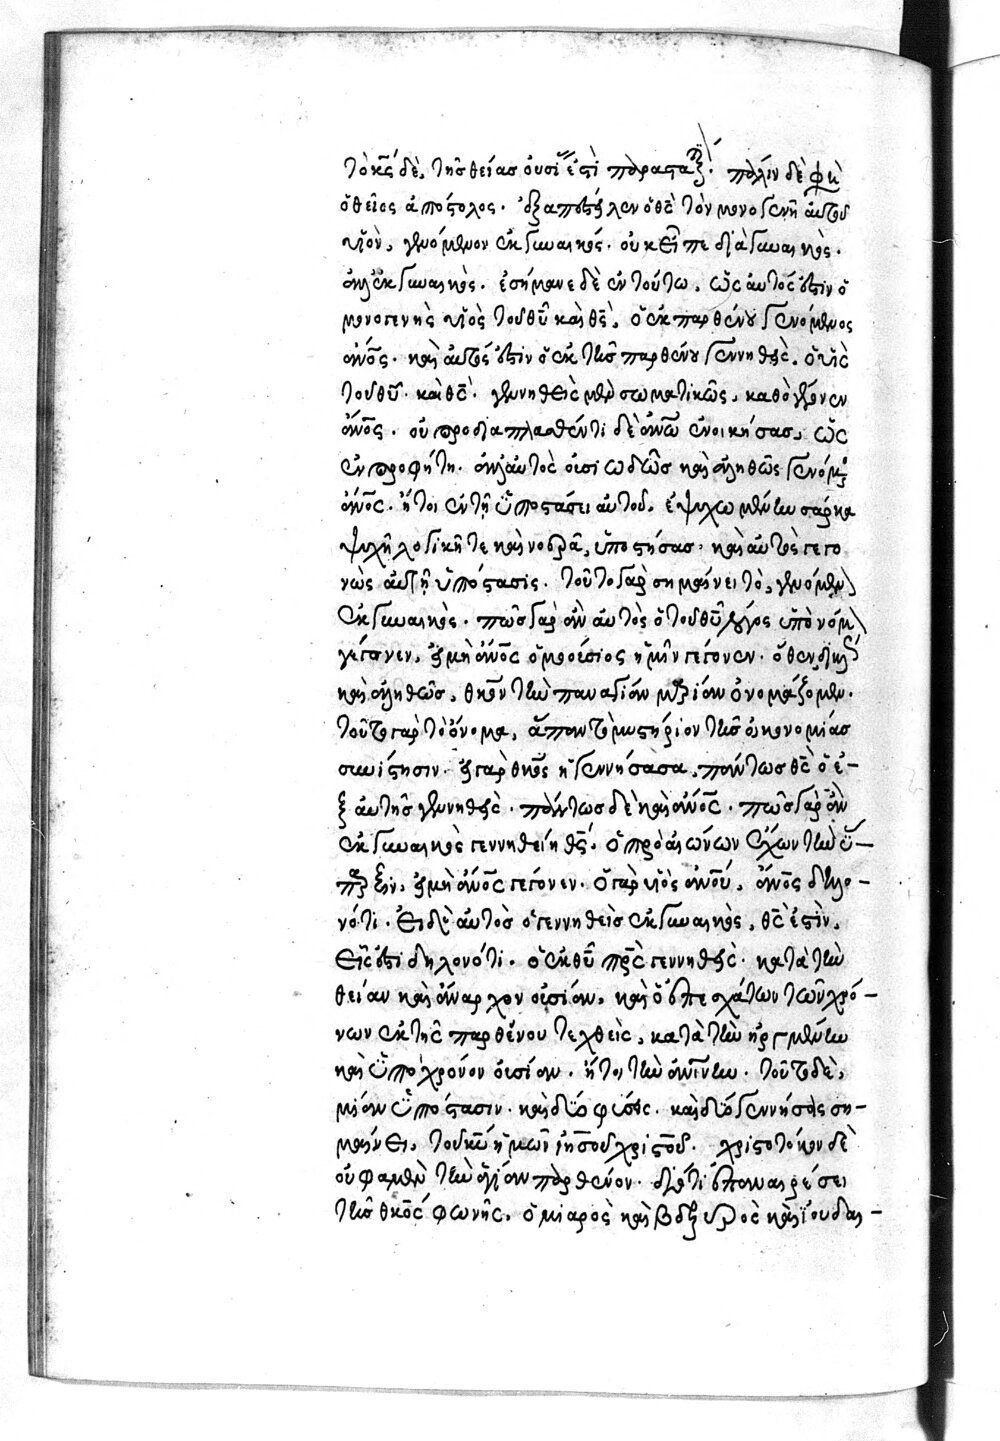 τὸ κτ̅ὸν δὲ, τῆς θείας οὐσί ἐστὶ παραστα. πάλιν δὲ φη
ὁ θεῖος ἀπόστολος. ἐξαπέστειλεν ὁ θ̅ς̅ τὸν μονογενῆ αὐτοῦ
υἱὸν, γενόμενον ἐκ γυναικός. οὐκ εἶπε διὰ γυναικὸς.
ἀλλ' ἐκ γυναικὸς. ἐσήμανε δὲ ἐν τούτω, ὡς αὐτός ἐστιν ὁ
μονογενὴς υἱὸς τοῦ θ̅υ̅ καὶ θ̅ς̅, ὁ ἐκ παρθένου γενόμενος
α̅ν̅ο̅ς̅. καὶ αὐτός ἐστιν ὁ ἐκ τῆς παρθένου γεννηθεὶς. ὁ υ̅ἱ̅ς̅
τοῦ θ̅υ̅ καὶ θ̅ς̅. γεννηθεὶς μὲν σωματικῶς, καθὸ γέγονεν
α̅ν̅ο̅ς̅. οὐ προδιαπλασθέντι δὲ α̅ν̅ω̅ ἐνοικήσας, ὡς
ἐν προφήτη. ἀλλ' αὐτὸς οὐσιωδῶς καὶ ἀληθῶς γενόμε
α̅ν̅ο̅ς̅. ἤτοι ἐν τῆ ὑποστάσει αὐτοῦ, ἐψυχωμένην σάρκα
ψυχῆ λογικῆ τε καὶ νοερᾶ, ὑποστήσας. καὶ αὐτὸς γεγο
νὼς αὐτῆ ὑπόστασις. τοῦτο γὰρ σημαίνει τὸ, γενόμεν
ἐκ γυναικὸς. πῶς γὰρ ἂν αὐτὸς ὁ τοῦ θ̅υ̅ λόγος ὑπὸ νόμ
γέγονεν, εἰ μὴ α̅ν̅ο̅ς̅ ὁμοούσιος ἡμῖν γέγονεν. ὅθεν δικαί
καὶ ἀληθῶς, θ̅κ̅ο̅ν̅ τὴν παναγίαν μαρίαν ὀνομάζομεν.
τοῦτο γὰρ τὸ ὄνομα, ἅπαν τὸ μυστήριον τῆς οἰκονομίας
συνίστησιν. εἰ γὰρ θ̅κ̅ο̅ς̅ ἡ γεννήσασα, πάντως θ̅ς̅ ὁ ἐ-
ξ αὐτῆς γεννηθεὶς. πάντως δὲ καὶ α̅ν̅ο̅ς̅. πῶς γὰρ ἂν
ἐκ γυναικὸς γεννηθείη θ̅ς̅. ὁ πρὸ αἰώνων ἔχων τὴν ὕ-
παρξιν, εἰ μὴ α̅ν̅ο̅ς̅ γέγονεν. ὁ γὰρ υἱὸς α̅ν̅ο̅υ̅, α̅ν̅ο̅ς̅ δηλο-
νότι. εἰ δὲ αὐτὸς ὁ γεννηθεὶς ἐκ γυναικὸς, θ̅ς̅ ἐστὶν,
εἷς ἐστι δηλονότι. ὁ ἐκ θ̅υ̅ π̅ρ̅ς̅ γεννηθεὶς. κατὰ τὴν
θείαν καὶ ἄναρχον οὐσίαν. καὶ ὁ ἐπ' ἐσχάτων τῶν χρό-
νων ἐκ τῆς παρθένου τεχθεὶς, κατὰ τὴν ἠργμένην
καὶ ὑπὸ χρόνον οὐσίαν. ἤτοι τὴν α̅ν̅ίνην. τοῦτο δὲ,
μίαν ὑπόστασιν. καὶ δύο φύσεις. καὶ δύο γεννήσεις ση-
μαίνει, τοῦ κ̅υ̅ ἡμῶν ἰησοῦ χριστοῦ. χριστοτόκον δὲ
οὔ φαμεν τὴν ἁγίαν παρθένον. διότι ἐπ' ἀναιρέσει
τῆς θ̅κ̅ο̅ς̅ φωνῆς. ὁ μιαρὸς καὶ βδελυρὸς καὶ ἰουδαι-